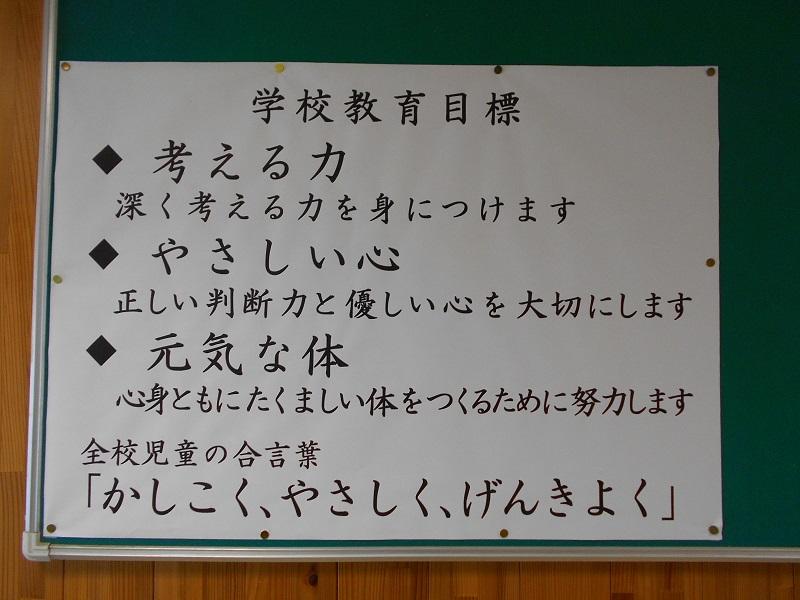 学校教育目標
◆ 考える力
深く考える力を身につけます
◆ やさしい心
正しい判断力と優しい心を大切にします
◆ 元気な体
心身ともにたくましい体をつくるために努力します
全校児童の合言葉
「かしこく、やさしく、げんきよく」